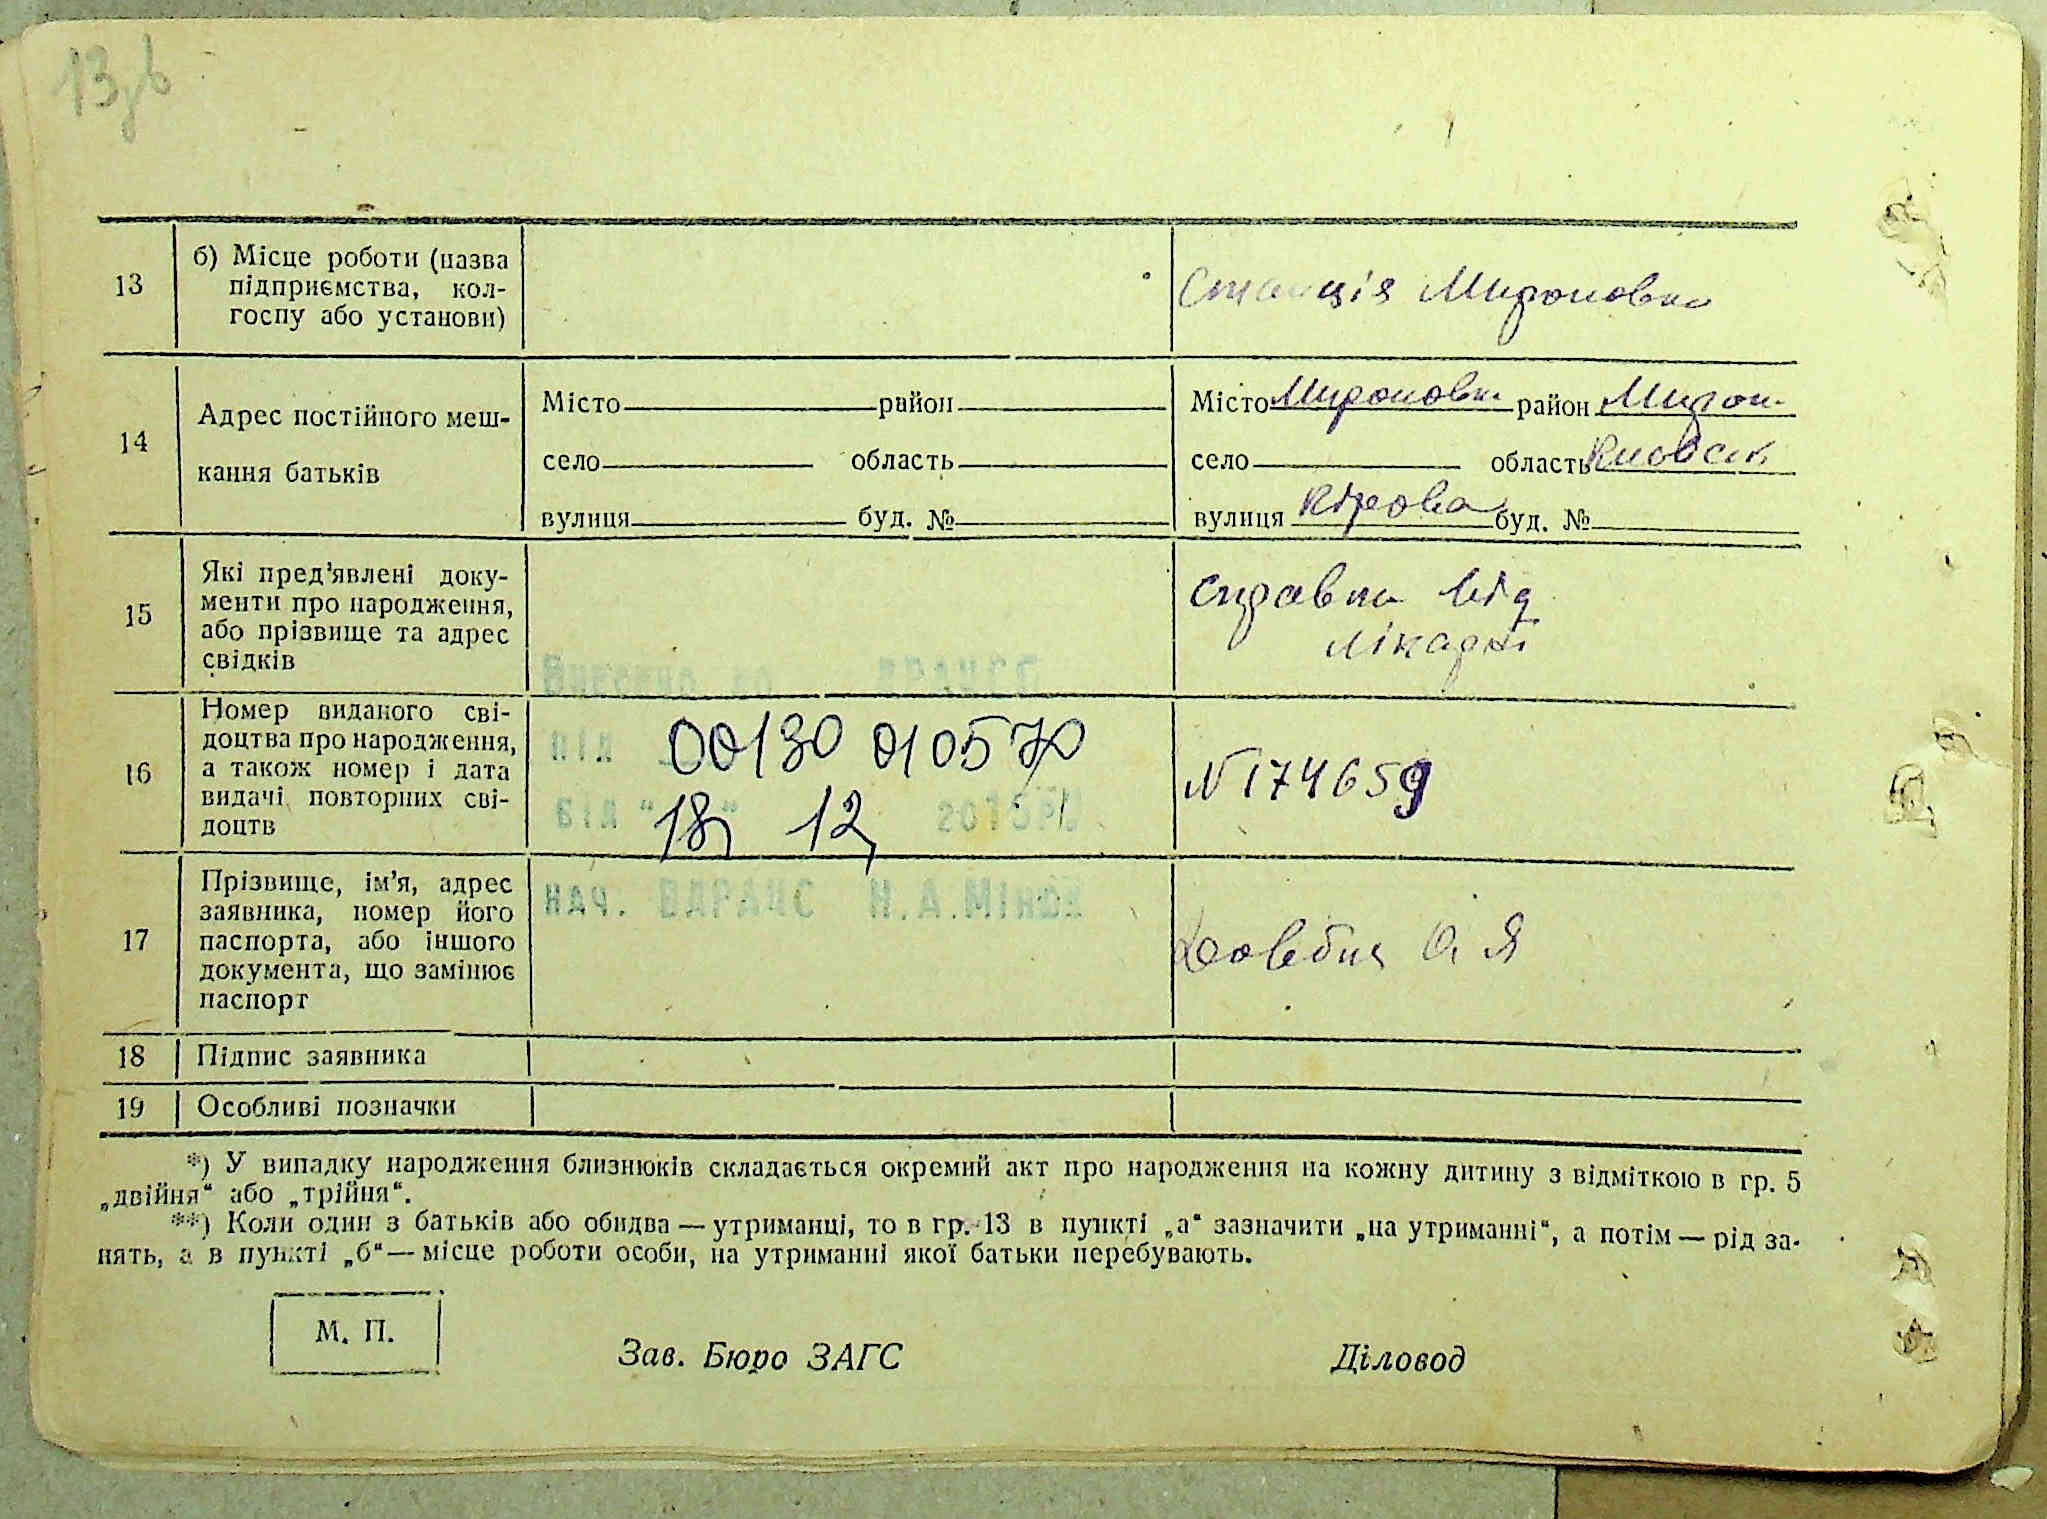 13зв
13
б) Місце роботи (назва
підприємства, кол-
госпу або установи)
Станція Мироновка
14
Адрес постійного меш-
кання батьків
Місто район
село область
вулиця буд. №
Місто Мироновка район Мирон.
село область Киовськ
вулиця Кірова буд. №
15
Які пред’явлені доку-
менти про народження,
або прізвище та адрес
свідків
Справка від
лікарні
16
Номер виданого сві-
доцтва про народження,
а також номер і дата
видачі повторних сві-
доцтв
Внесено до ДРАЦСГ
під 00130 010570
від "18" 12 2013р.
нач. ВДРАЦС Н.А.Мінюк
N 174659
17
Прізвище, ім’я, адрес
заявника, номер його
паспорта, або іншого
документа, що замінює
паспорт
О. Я
18 Підпис заявника
19 Особливі позначки
*) У випадку народження близнюків складається окремий акт про народження на кожну дитину з відміткою в гр. 5
„двійня“ або „трійня“.
**) Коли один з батьків або обидва — утриманці, то в гр. 13 в пункті „а“ зазначити „на утриманні“, а потім — рід за-
нять, а в пункті „б“ — місце роботи особи, на утриманні якої батьки перебувають.
М. П.
Зав. Бюро ЗАГС
Діловод